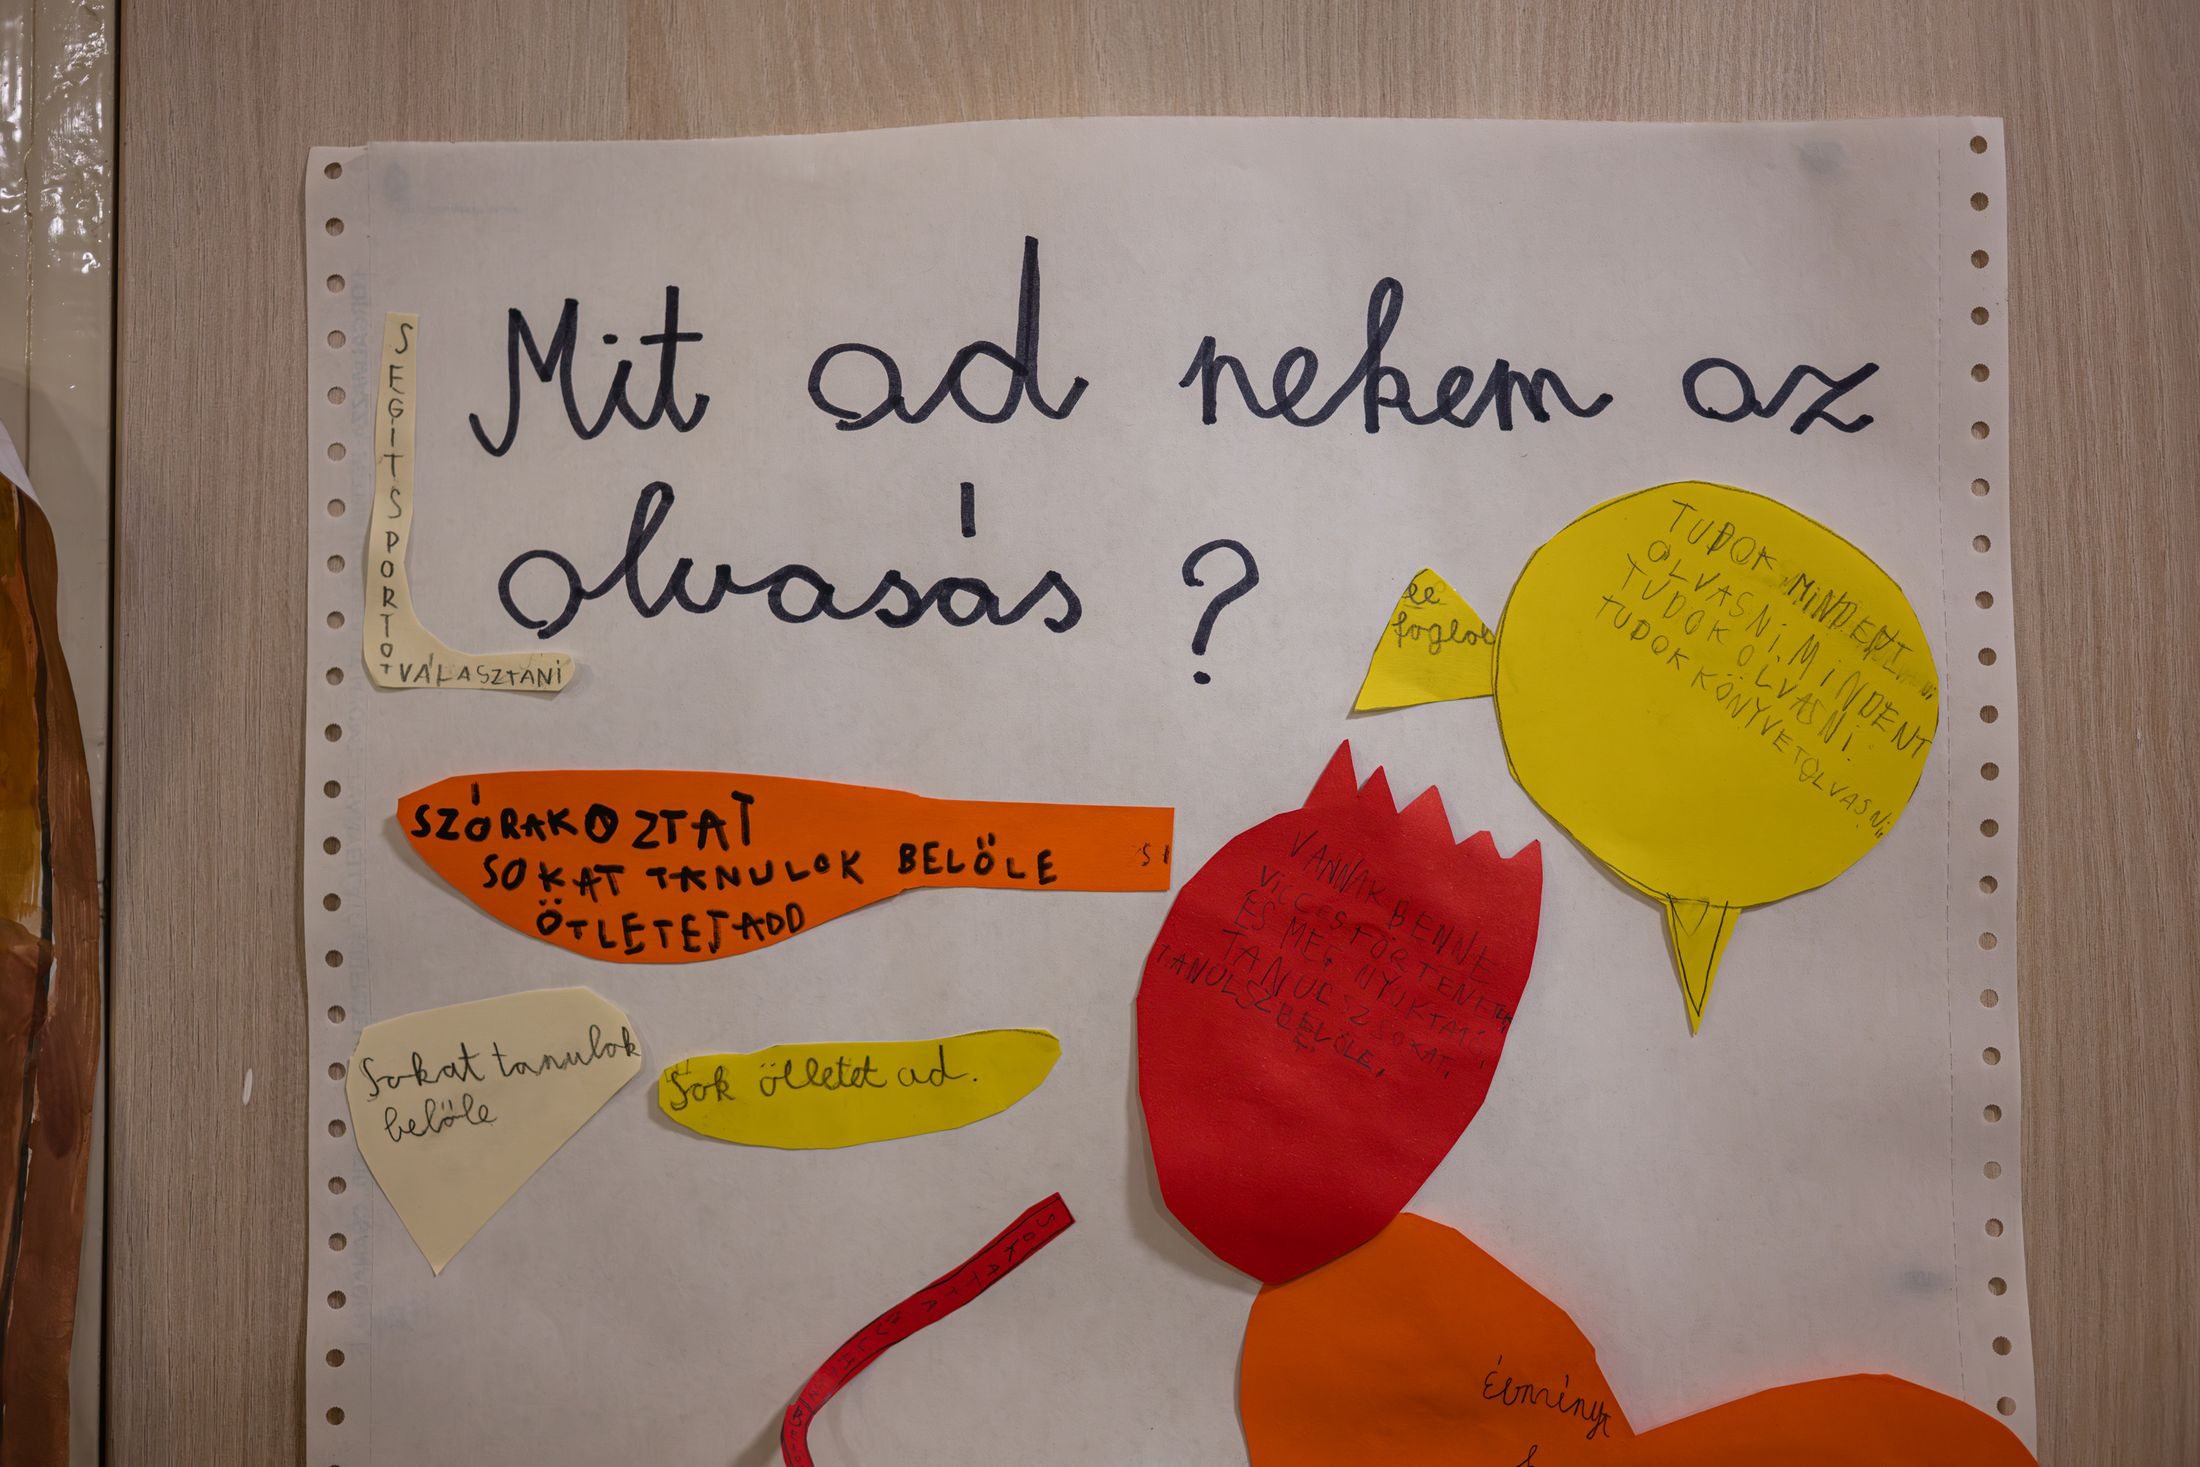 Mit ad nekem az
olvasás ?
SEGITSPORTOT
VÁLASZTANI
le
foglal
TUDOK MINDENT
OLVASNi. MiNDENT
TUDOK OLVASNi.
TUDOK KÖNYVETOLVASNi
SZÓRAKOZTAT
SOKAT TANULOK BELÖLE
ÖTLETETADD
VANNAK BENNE
VICCES TÖRTENETEK
ES MEG NYUKTATÓ
TANULSZ SOKAT.
TANULSZBELÖLE,
Sokat tanulok
belöle
Sok ötletet ad.
SOKAT